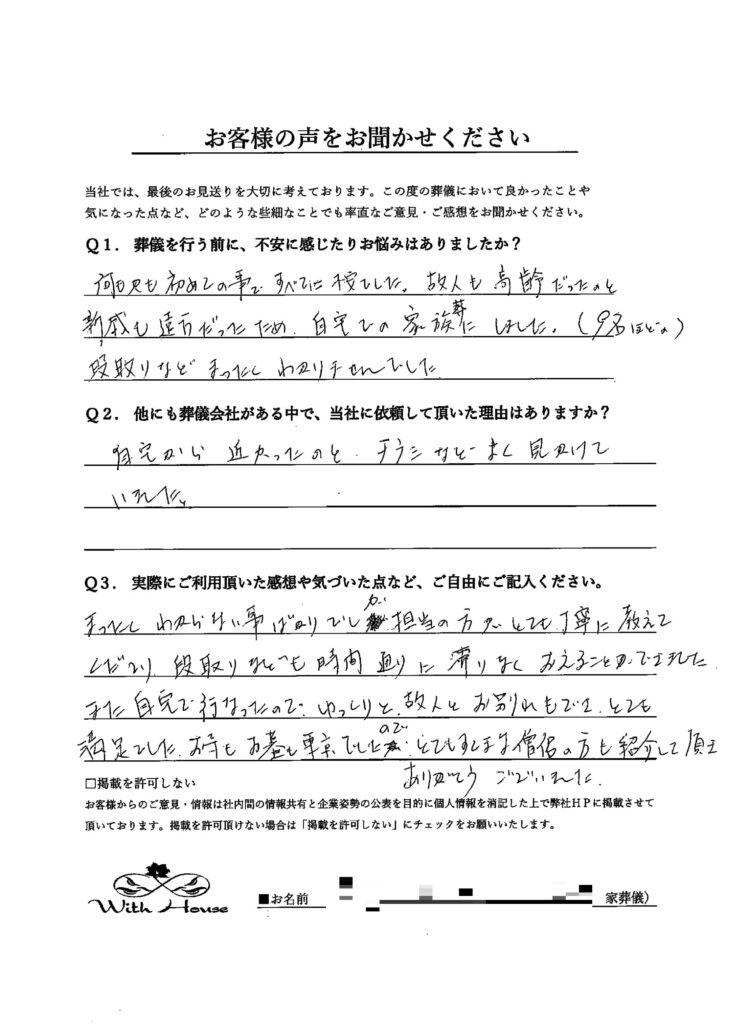 お客様の声をお聞かせください
当社では、最後のお見送りを大切に考えております。この度の葬儀において良かったことや
気になった点など、どのような些細なことでも率直なご意見・ご感想をお聞かせください。
Q1. 葬儀を行う前に、不安に感じたりお悩みはありましたか？
何もかも初めての事で すべてに不安でした。故人も高齢だったのと
親戚も遠方だったため、自宅での家族葬に しました。(9名ほどの)
段取りなど まったく わかりませんでした
Q2. 他にも葬儀会社がある中で、当社に依頼して頂いた理由はありますか？
自宅から 近かったのと、チラシなどよく見かけて
いました。
Q3. 実際にご利用頂いた感想や気づいた点など、ご自由にご記入ください。
まったく わからない事ばかりでしたが 担当の方が とても丁寧に教えて
くださり、段取りなども時間通りに滞りなく おえることができました
また自宅で行なったので、ゆっくりと、故人と お別れもでき、とても
満足でした。お寺も お墓も東京でしたので、とてもすてきな僧侶の方も紹介して頂き
ありがとう ございました。
□掲載を許可しない
お客様からのご意見・情報は社内間の情報共有と企業姿勢の公表を目的に個人情報を消記した上で弊社HPに掲載させて
頂いております。掲載を許可頂けない場合は「掲載を許可しない」にチェックをお願いいたします。
With House
■お名前 家葬儀）